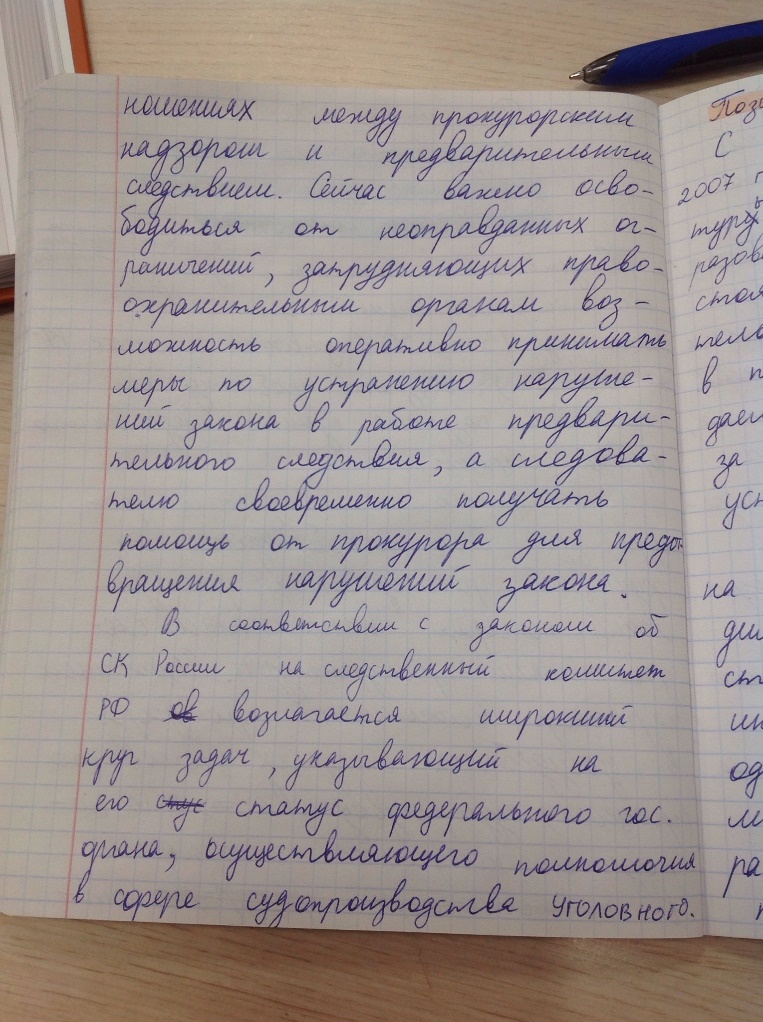 ношениях между прокурорским
надзором и предварительным
следствием. Сейчас важно осво-
бодиться от неоправданных ог-
раничений, затрудняющих право-
охранительным органам воз-
можность оперативно принимать
меры по устранению наруше-
ний закона в работе предвари-
тельного следствия, а следова-
телю своевременно получать
помощь от прокурора для предот-
вращения нарушений закона.
В соответствии с законом об
СК России на следственный комитет
РФ ов возлагается широкий
круг задач, указывающий на
его стус статус федерального гос.
органа, осуществляющего полномочия
в сфере судопроизводства уголовного.
Пози
С
2007 г
туру
разов
стоя
тел
в п
дает
за
уст
на
ди
ст
ин
од
ра